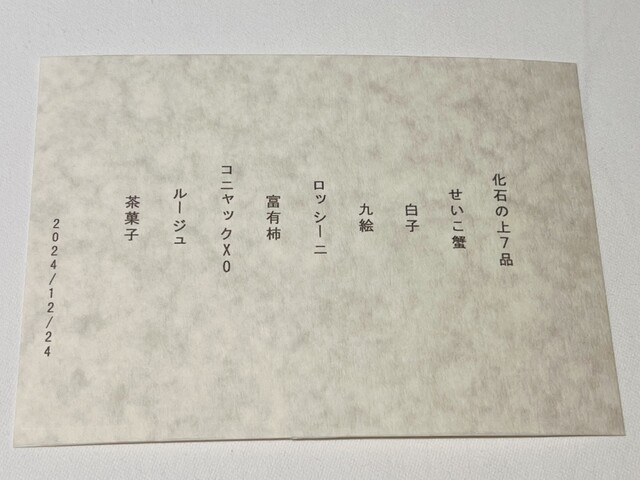 化石の上7品
せいこ蟹
白子
九絵
ロッシーニ
富有柿
コニャックXO
ルージュ
茶菓子
2024/12/24